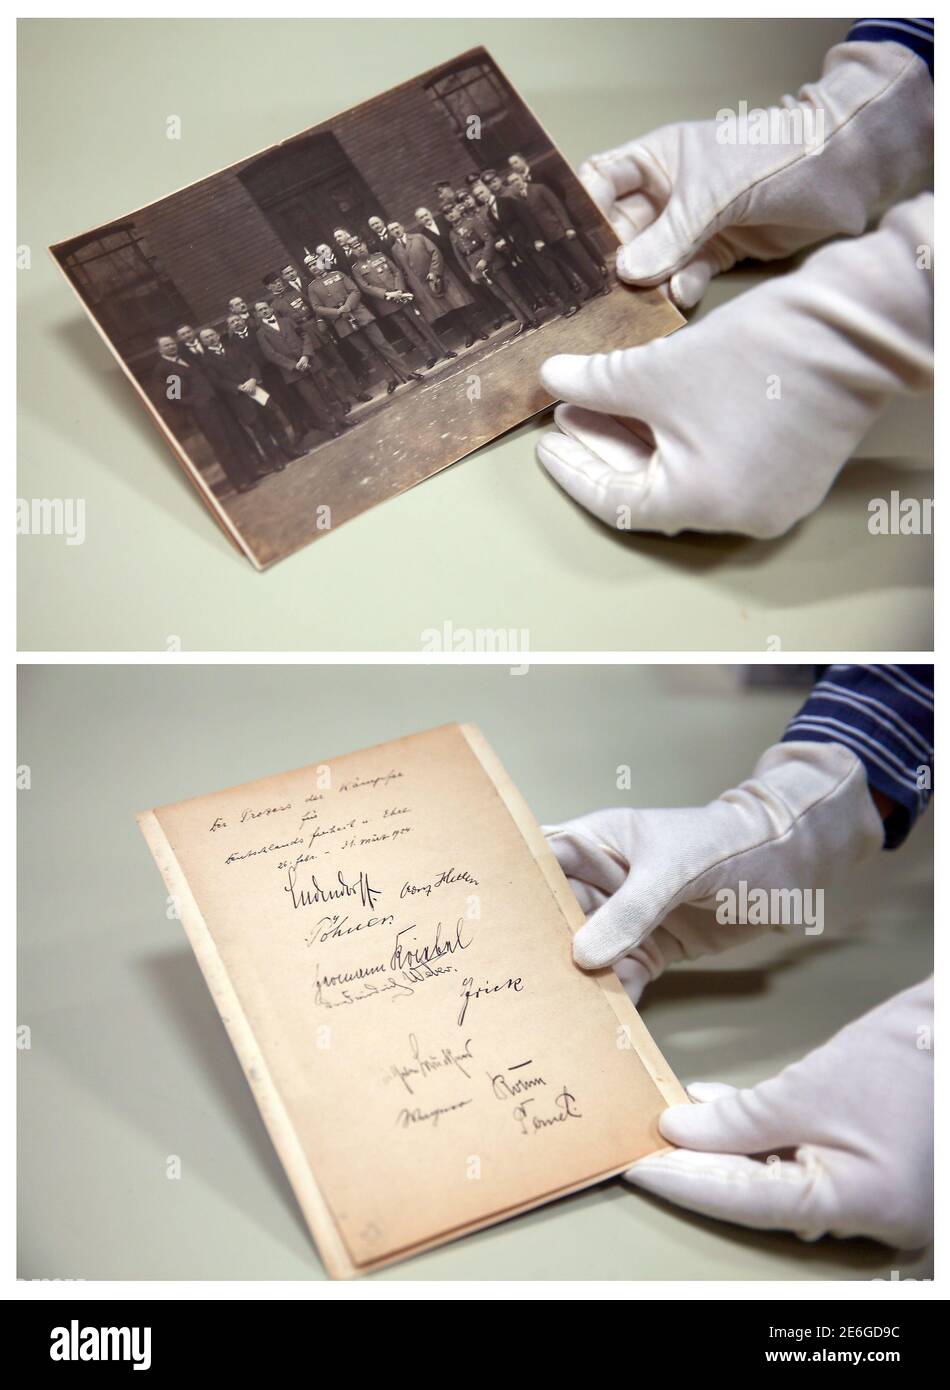 alamy
alamy
alamy
alamy
alamy
Der Prozess der Kämpfer
für
Deutschlands Freiheit u. Ehre
26. Febr. - 31. März 1924.
Ludendorff. Adolf Hitler
Pöhner
Hermann Kriebel
Friedrich Weber.
Frick
Wilhelm Brückner
Wagner Röhm
Pernet.
alamy
alamy
Image ID: 2E6GD9C
www.alamy.com